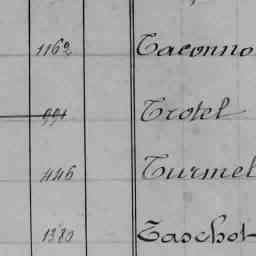 1162 Taconno
991 Trotel
446 Turmel
1380 Taschot